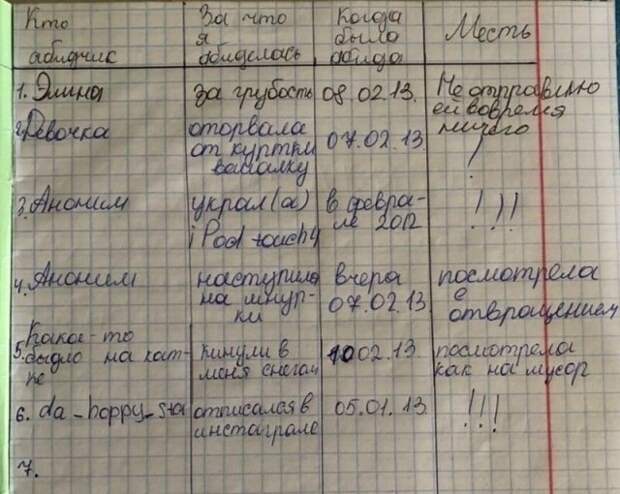 Кто
абидчик
За что
я
абиделась
Когда
было
абида
Месть
1. Элина
за грубость
08.02.13.
Не отправлю
ей вовремя
ничего
2. Девочка
оторвала
от куртки
вашалку
07.02.13.
!
3. Аноним
украл(а)
iPod touchч
в февра-
ле 2012
!!!
4. Аноним
наступила
на шнур-
ки
вчера
07.02.13
посмотрела
с
отвращением
5. Какое-то
быдло на кат-
ке
кинули в
меня снегом
10 02.13
посмотрела
как на мусор
6. da_happy_sta
отписался в
инстаграме
05.01.13.
!!!
7.